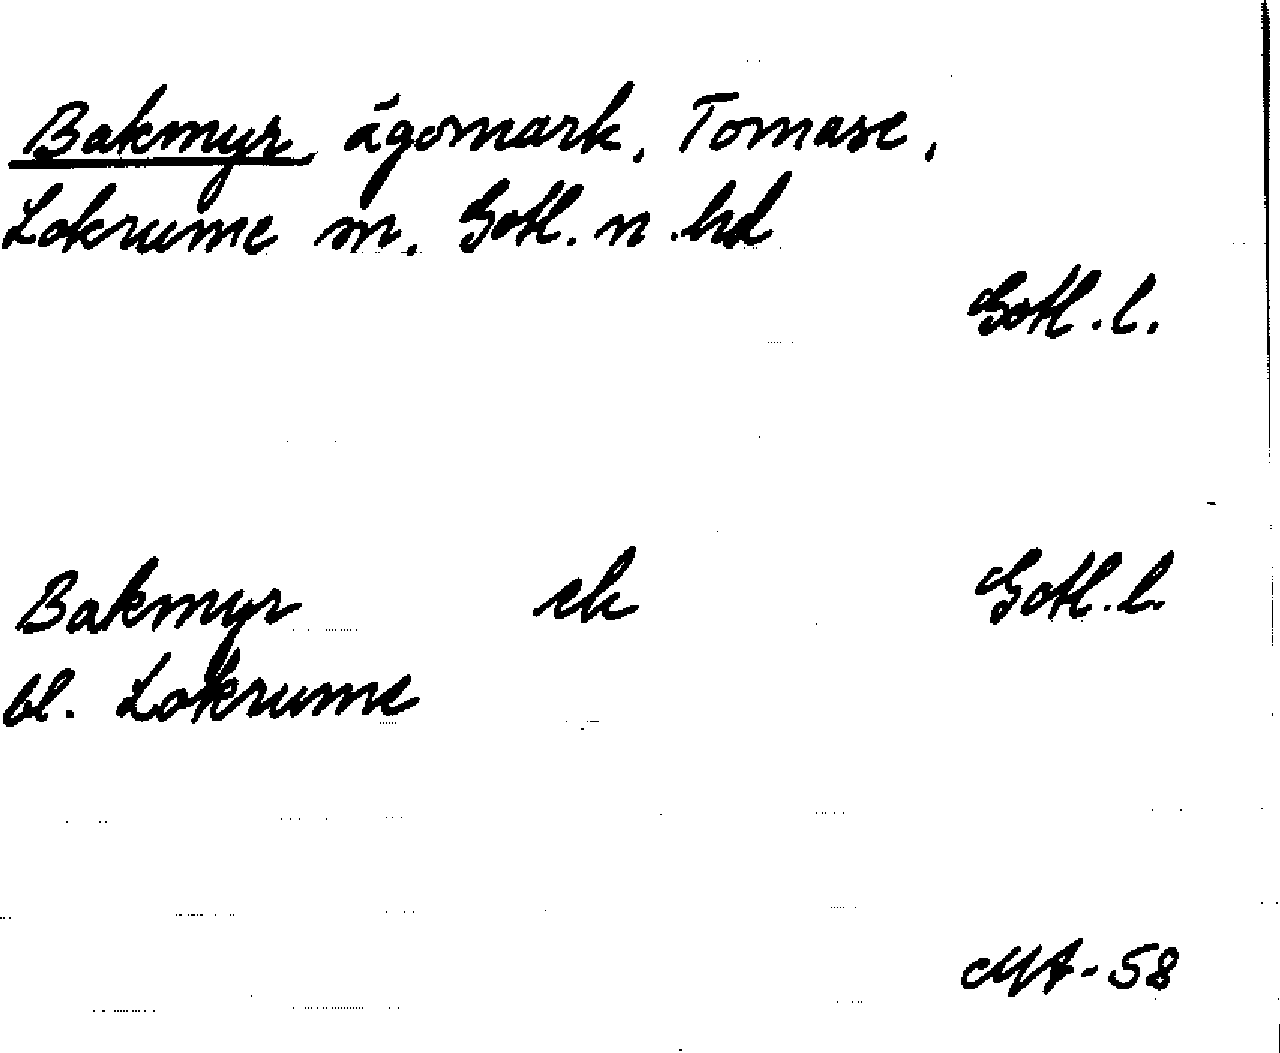 Bakmyr ägomark, Tomase,
Lokrume sn. Gotl. n. hd
Gotl. l.
Bakmyr ek Gotl. l.
bl. Lokrume
MA-58